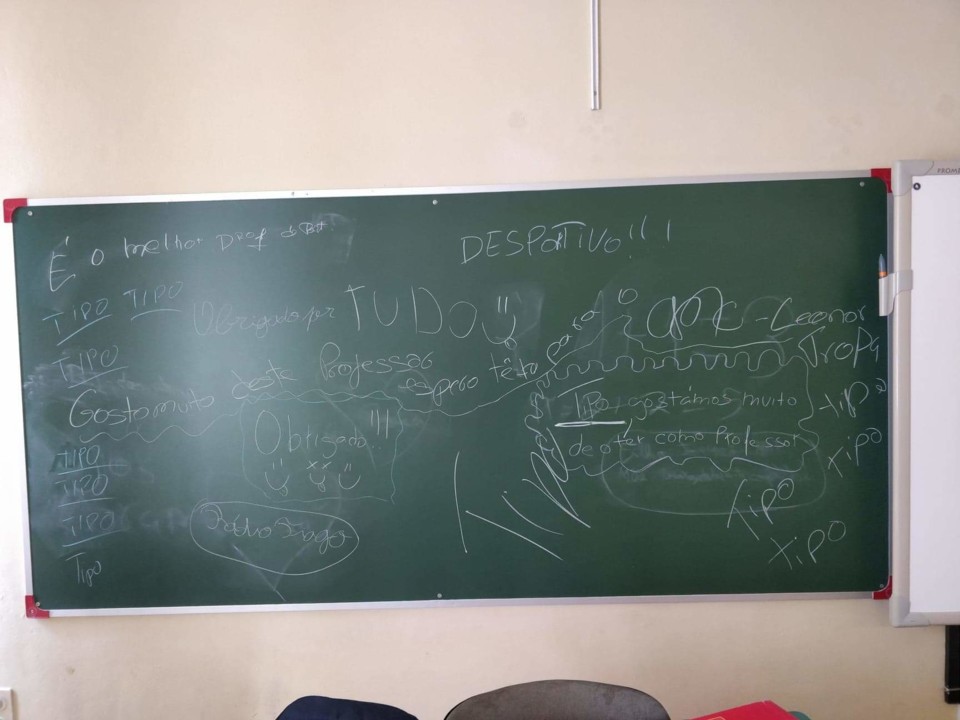 É o melhor Prof do
DESPORTIVO!!!
TIPO TIPO
Obrigado por TUDO
- Leonor
TIPO
Gosto muito deste Professor
espero tê-lo para o
Tropa
Tipo, gostámos muito
de o ter como Professor
Obrigado!!!
Tipo
Tipo
TIPO
TIPO
TIPO
Tipo
Tipo
Tipo
Tipo
PROME